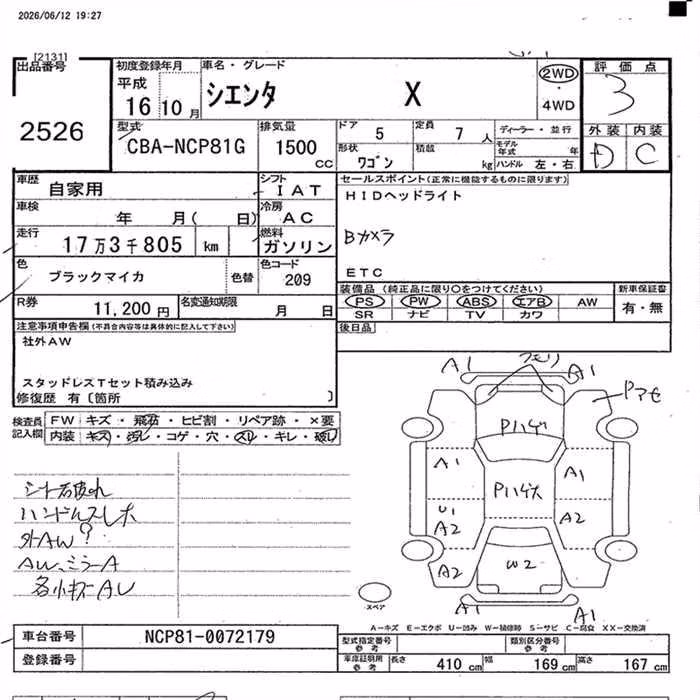 2026/06/12 19:27
[2131]
出品番号
2526
初度登録年月
平成
16 10 月
車名・グレード
シエンタ X
2WD
・
4WD
評価点
3
外装 内装
D C
型式
CBA-NCP81G
排気量
1500
cc
ドア 5
定員 7 人
形状
ワゴン
積載
kg
ディーラー・並行
モデル年式 年
ハンドル 左・右
車歴
自家用
シフト
IAT
車検
年 月( 日)
冷房
AC
走行
17万3千805 km
燃料
ガソリン
色
ブラックマイカ
色替
色コード
209
R券
11,200円
名変通知期限
月 日
セールスポイント(正常に機能するものに限ります)
HIDヘッドライト
Bカメラ
ETC
装備品(純正品に限り○をつけてください)
新車保証書
PS PW ABS エアB AW
有・無
SR ナビ TV カワ
後日品
注意事項申告欄(不具合内容等は具体的に記入して下さい)
社外AW
スタッドレスTセット積み込み
修復歴 有〔箇所 〕
検査員
記入欄
FW キズ・飛石・ヒビ割・リペア跡・×要
内装 キズ・汚レ・コゲ・穴・スレ・キレ・破レ
シート右破れ
ハンドルスレ大
外AW?
AW、ミラーA
各小キズAU
A1 フモリ A1
Pアセ
Pハゲ
A1
A1
Pハゲ大
U1
A2
A2
A2
W2
A1
A1
スペア
A-キズ E-エクボ U-凹み W-補修跡 S-サビ C-腐食 XX-交換済
車台番号
NCP81-0072179
登録番号
型式指定番号
参考
類別区分番号
参考
車庫証明用
参考
長さ 410 cm 幅 169 cm 高さ 167 cm